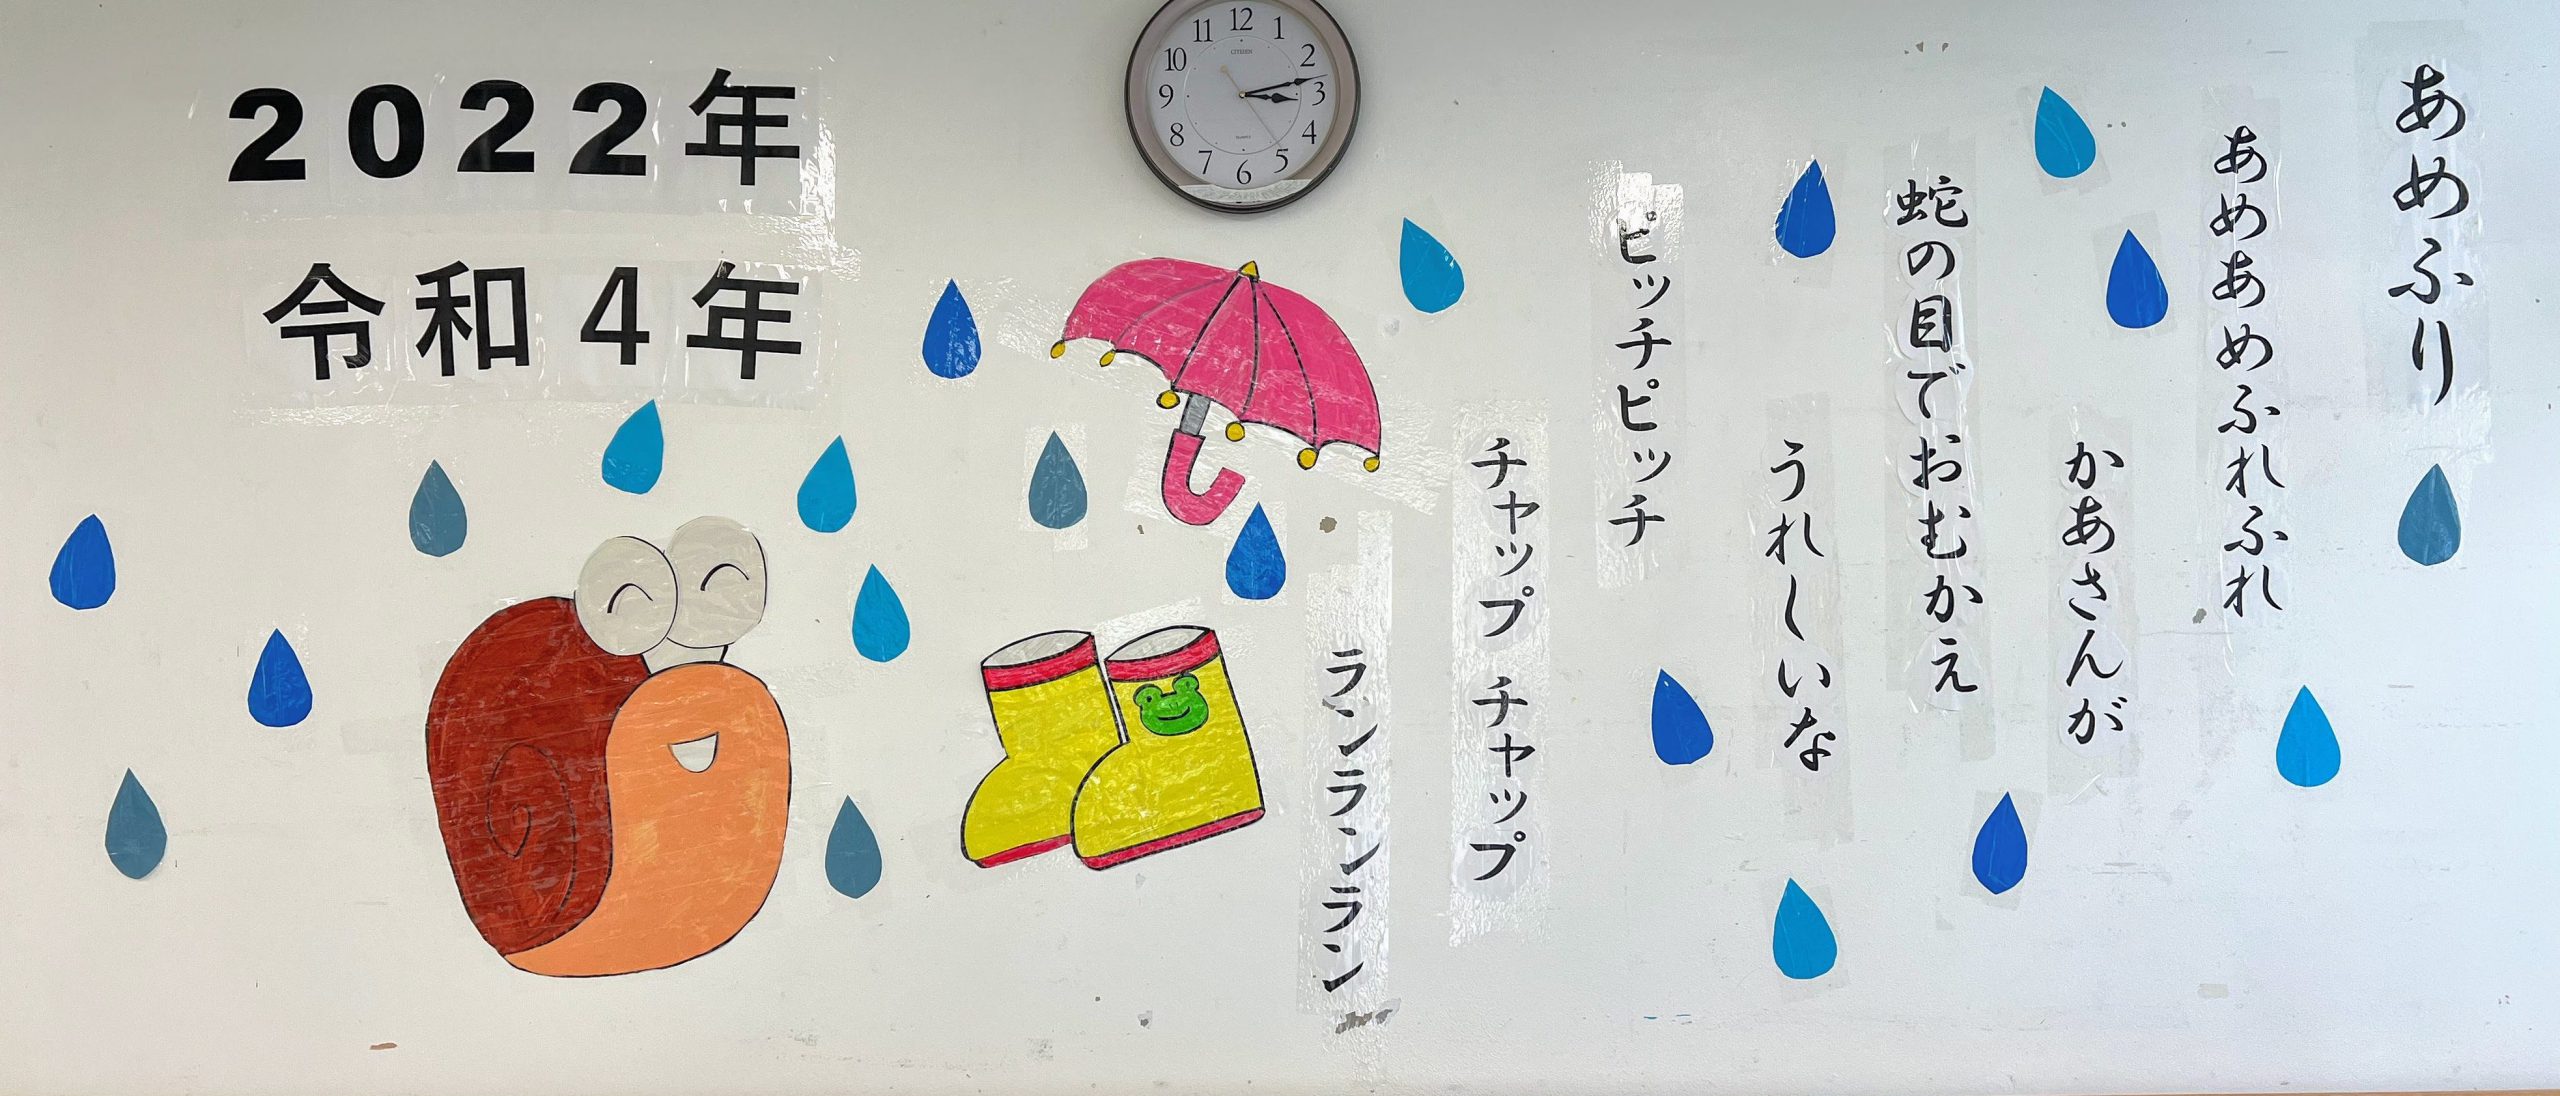 あめふり
あめあめふれふれ
かあさんが
蛇の目でおむかえ
うれしいな
ピッチピッチ
チャップ チャップ
ランランラン
2022年
令和4年
12
1
2
3
4
5
6
7
8
9
10
11
CITIZEN
QUARTZ